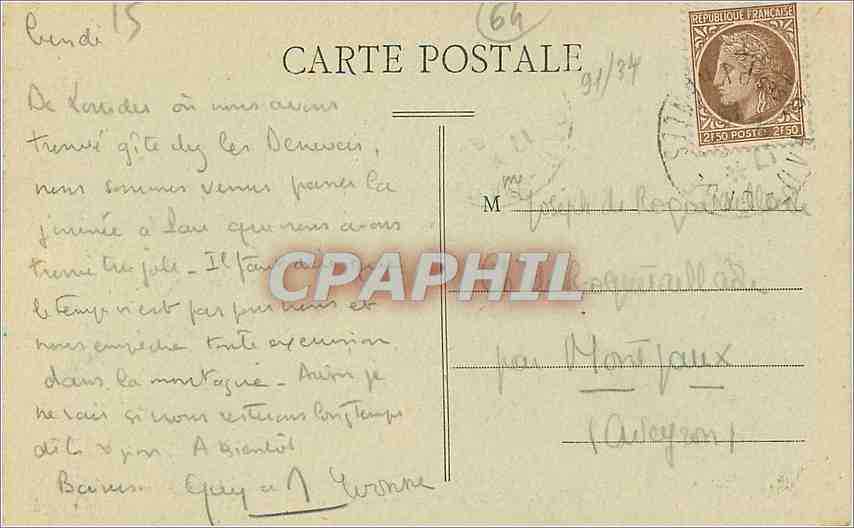 Lundi 15
64
CARTE POSTALE
91/34
REPUBLIQUE FRANÇAISE
2F50 POSTE 2F50
De Lourdes où nous avons
trouvé gîte chez les
nous sommes venus passer la
journée à que nous avons
trouvé très joli - Il faut dire que
le temps n'est pas pour nous et
nous empêche toute excursion
dans la montagne - Aussi je
ne sais si nous resterons longtemps
A Bientôt
Baisers Guy et Yvonne
Mme
M Joseph de
CPAPHIL
par Montjaux
(Aveyron)